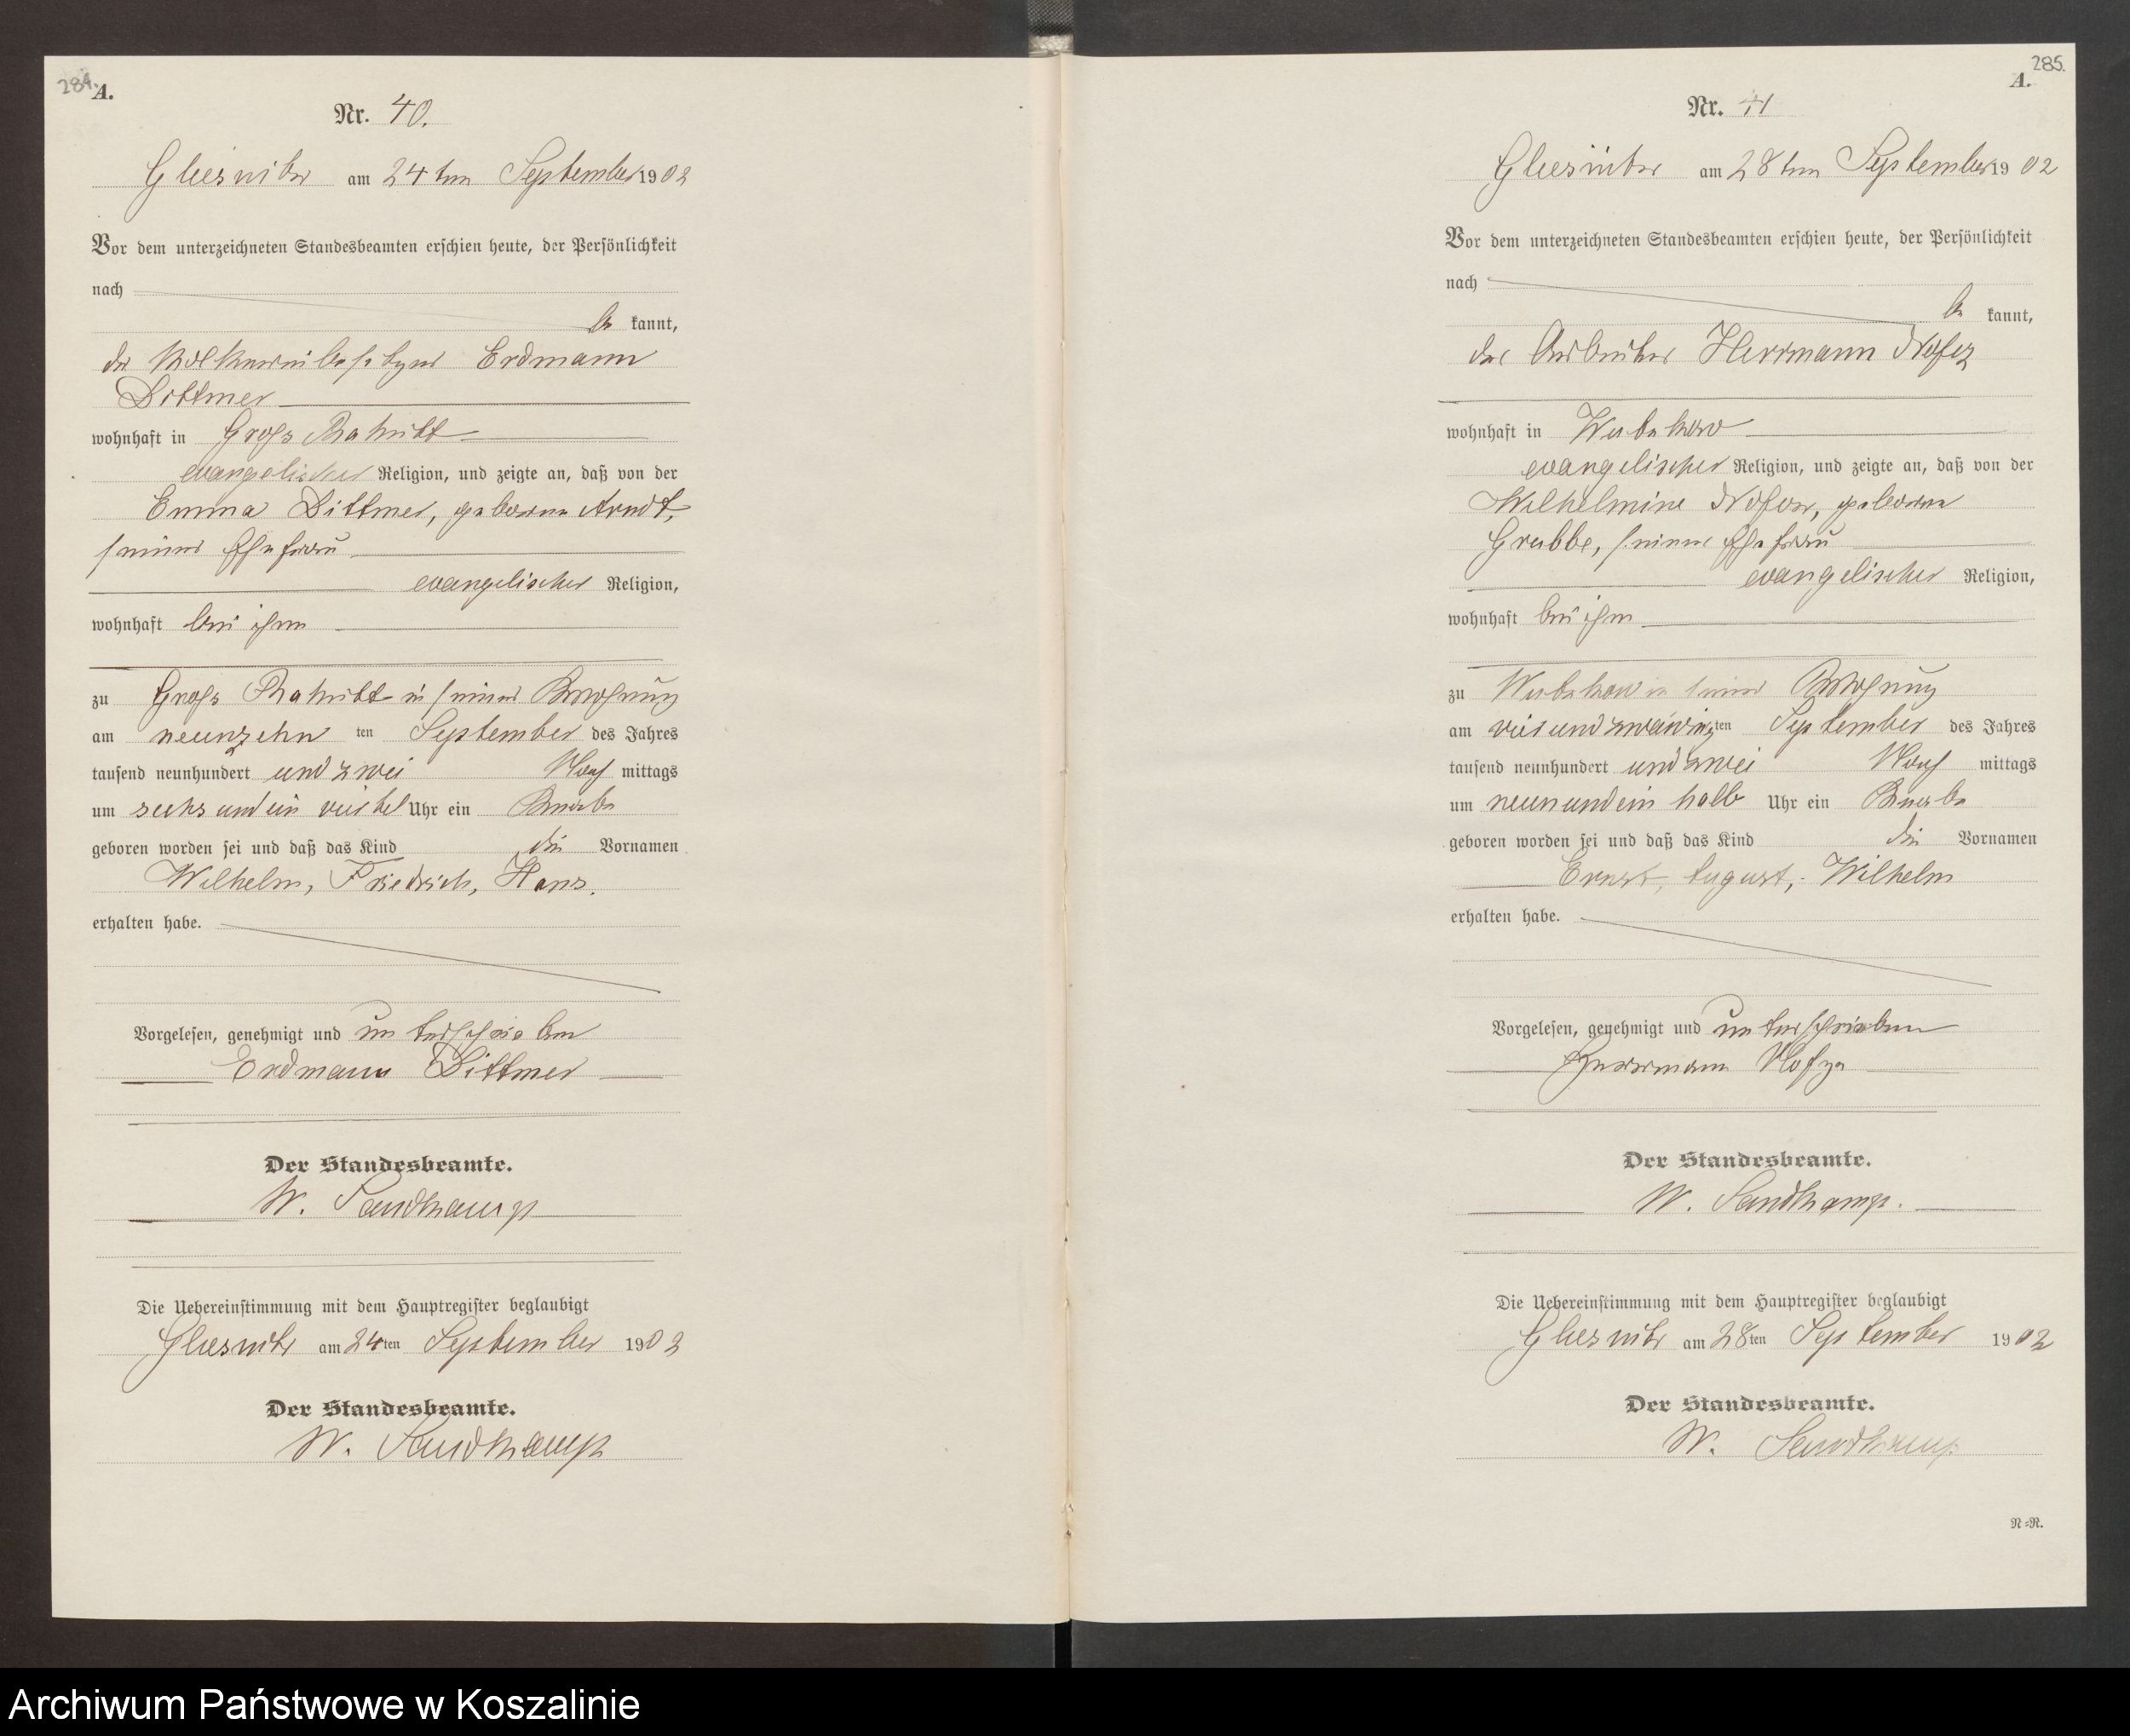 284.
A.
Nr. 40.
Gliesnitz am 24ten September 1902
Vor dem unterzeichneten Standesbeamten erschien heute, der Persönlichkeit
nach
be kannt,
der Molkereibesitzer Erdmann
Dittmer
wohnhaft in Groß Rakitt
evangelischer Religion, und zeigte an, daß von der
Emma Dittmer, geborene Arndt,
seiner Ehefrau
evangelischer Religion,
wohnhaft bei ihm
zu Groß Rakitt in seiner Wohnung
am neunzehn ten September des Jahres
tausend neunhundert und zwei Nach mittags
um sechs und ein viertel Uhr ein Knabe
geboren worden sei und daß das Kind die Vornamen
Wilhelm, Friedrich, Hans.
erhalten habe.
Vorgelesen, genehmigt und unterschrieben
Erdmann Dittmer
Der Standesbeamte.
W. Sandkamp
Die Uebereinstimmung mit dem Hauptregister beglaubigt
am 24ten September 1902
Der Standesbeamte.
W. Sandkamp
285.
A.
Nr. 41
am 28ten September 1902
Vor dem unterzeichneten Standesbeamten erschien heute, der Persönlichkeit
nach
be kannt,
der Arbeiter Herrmann
wohnhaft in
evangelischer Religion, und zeigte an, daß von der
Wilhelmine geborene
Grubbe, seiner Ehefrau
evangelischer Religion,
wohnhaft bei ihm
zu in seiner Wohnung
am ten September des Jahres
tausend neunhundert und zwei Nach mittags
um neun und ein halb Uhr ein Knabe
geboren worden sei und daß das Kind die Vornamen
Ernst, August, Wilhelm
erhalten habe.
Vorgelesen, genehmigt und unterschrieben
Herrmann
Der Standesbeamte.
W. Sandkamp.
Die Uebereinstimmung mit dem Hauptregister beglaubigt
am 28ten September 1902
Der Standesbeamte.
W. Sandkamp.
N=R.
Archiwum Państwowe w Koszalinie